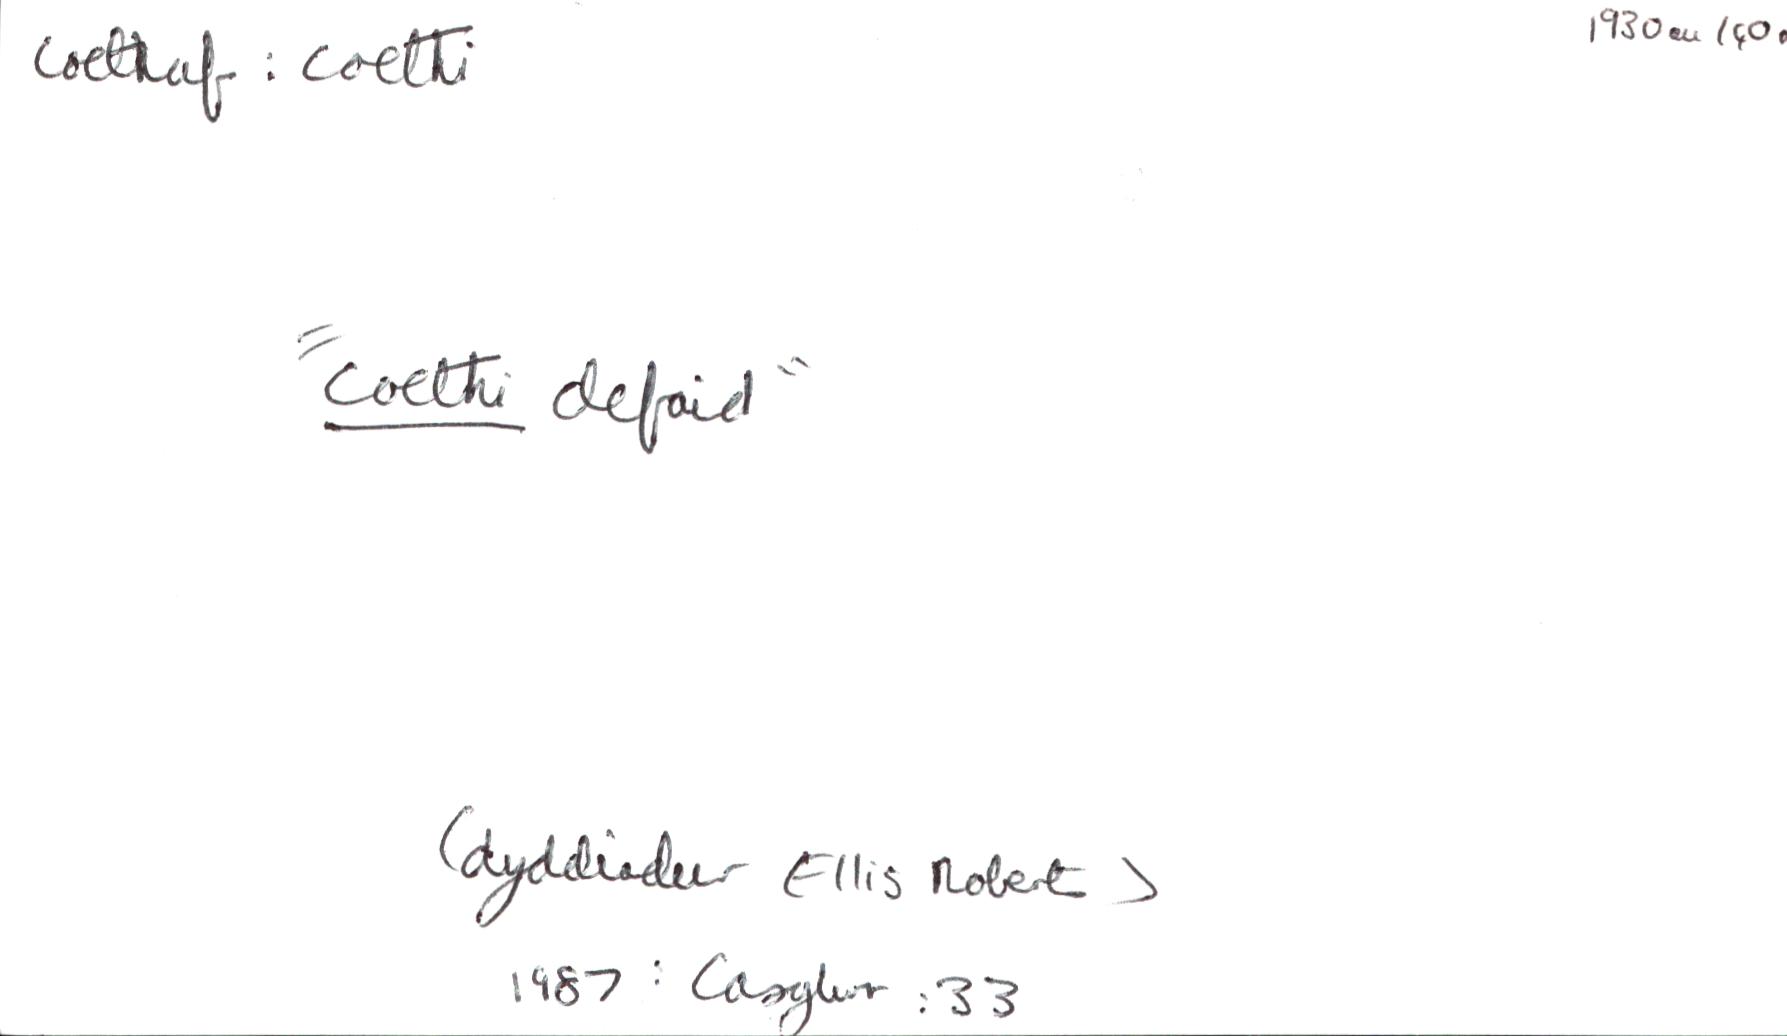 coethaf : coethi
1930au /40
"coethi defaid"
(dyddiadur Ellis Robert)
1987 : Casglwr : 33